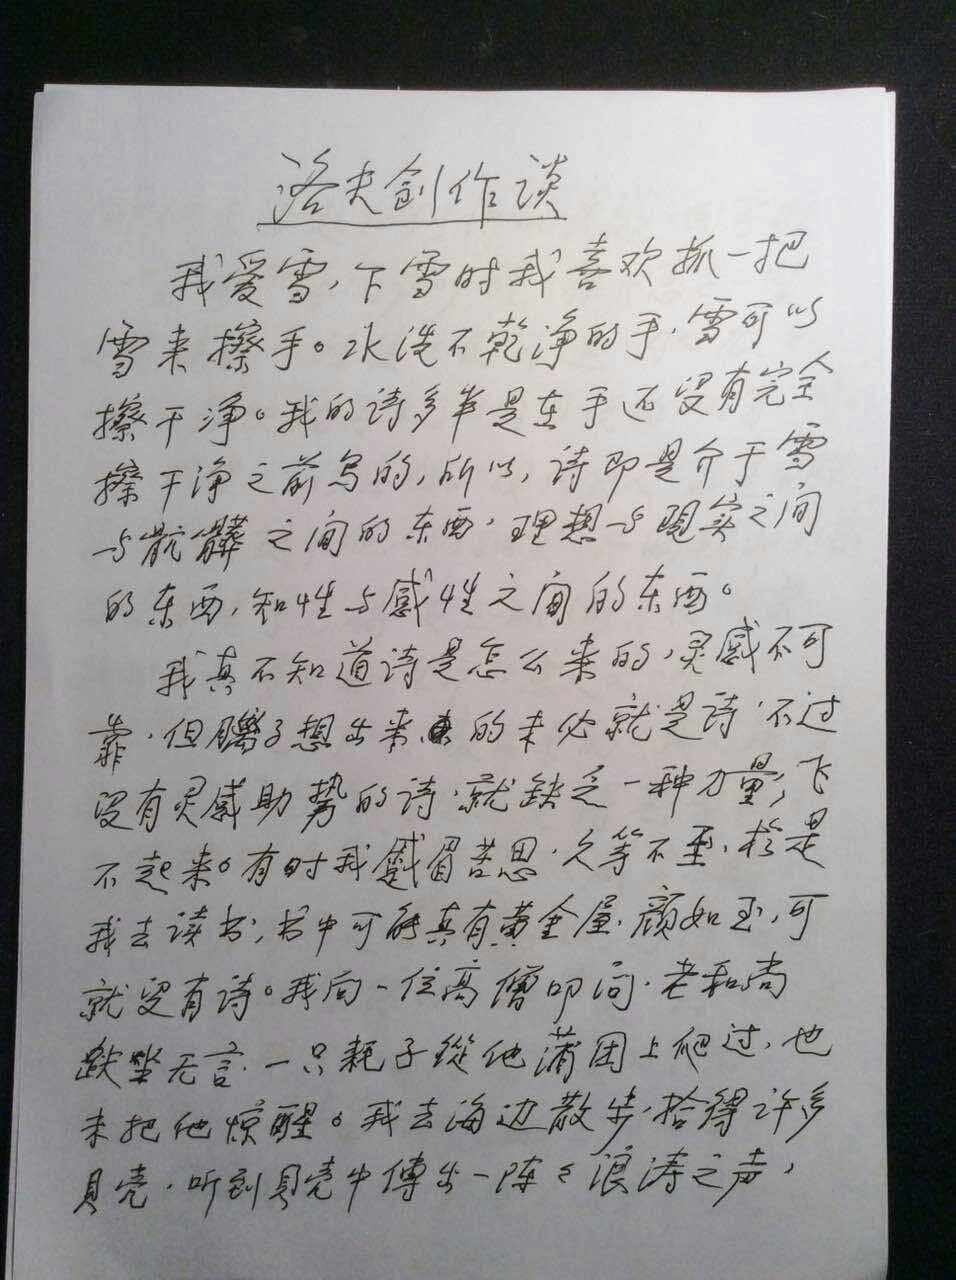 洛夫创作谈
我爱雪，下雪时我喜欢抓一把
雪来擦手。水洗不乾净的手，雪可以
擦干净。我的诗多半是在手还没有完全
擦干净之前写的，所以，诗即是介于雪
与骯髒之间的东西，理想与現实之间
的东西，知性与感性之间的东西。
我真不知道诗是怎么来的，灵感不可
靠，但腦子想出来的未必就是诗，不过
没有灵感助势的诗，就缺乏一种力量，飞
不起来。有时我蹙眉苦思，久等不至，於是
我去读书，书中可能真有黄金屋，颜如玉，可
就没有诗。我向一位高僧叩问，老和尚
趺坐无言，一只耗子從他蒲团上爬过，也
未把他惊醒。我去海边散步，拾得许多
貝壳，听到貝壳中傳出一陣々浪涛之声，